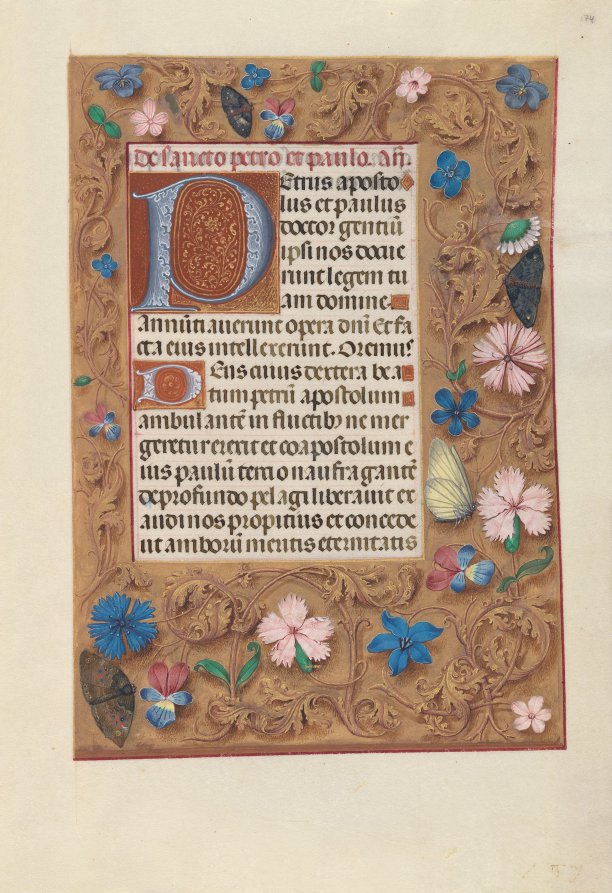 74
De sancto petro et paulo. Añ
Petrus aposto
lus et paulus
doctor gentiū
ipsi nos docue
runt legem tu
am domine.
Annūtiauerunt opera dnī Et fa
cta eius intellexerunt. Oremus
Deus cuius dextera bea
tum petrū apostolum
ambulantē in fluctibꝫ ne mer
geretur erexit et coapostolum e
ius paulū tertio naufragantē
de profundo pelagi liberauit et
audi nos propitius et concede
ut amborū meritis eternitatis